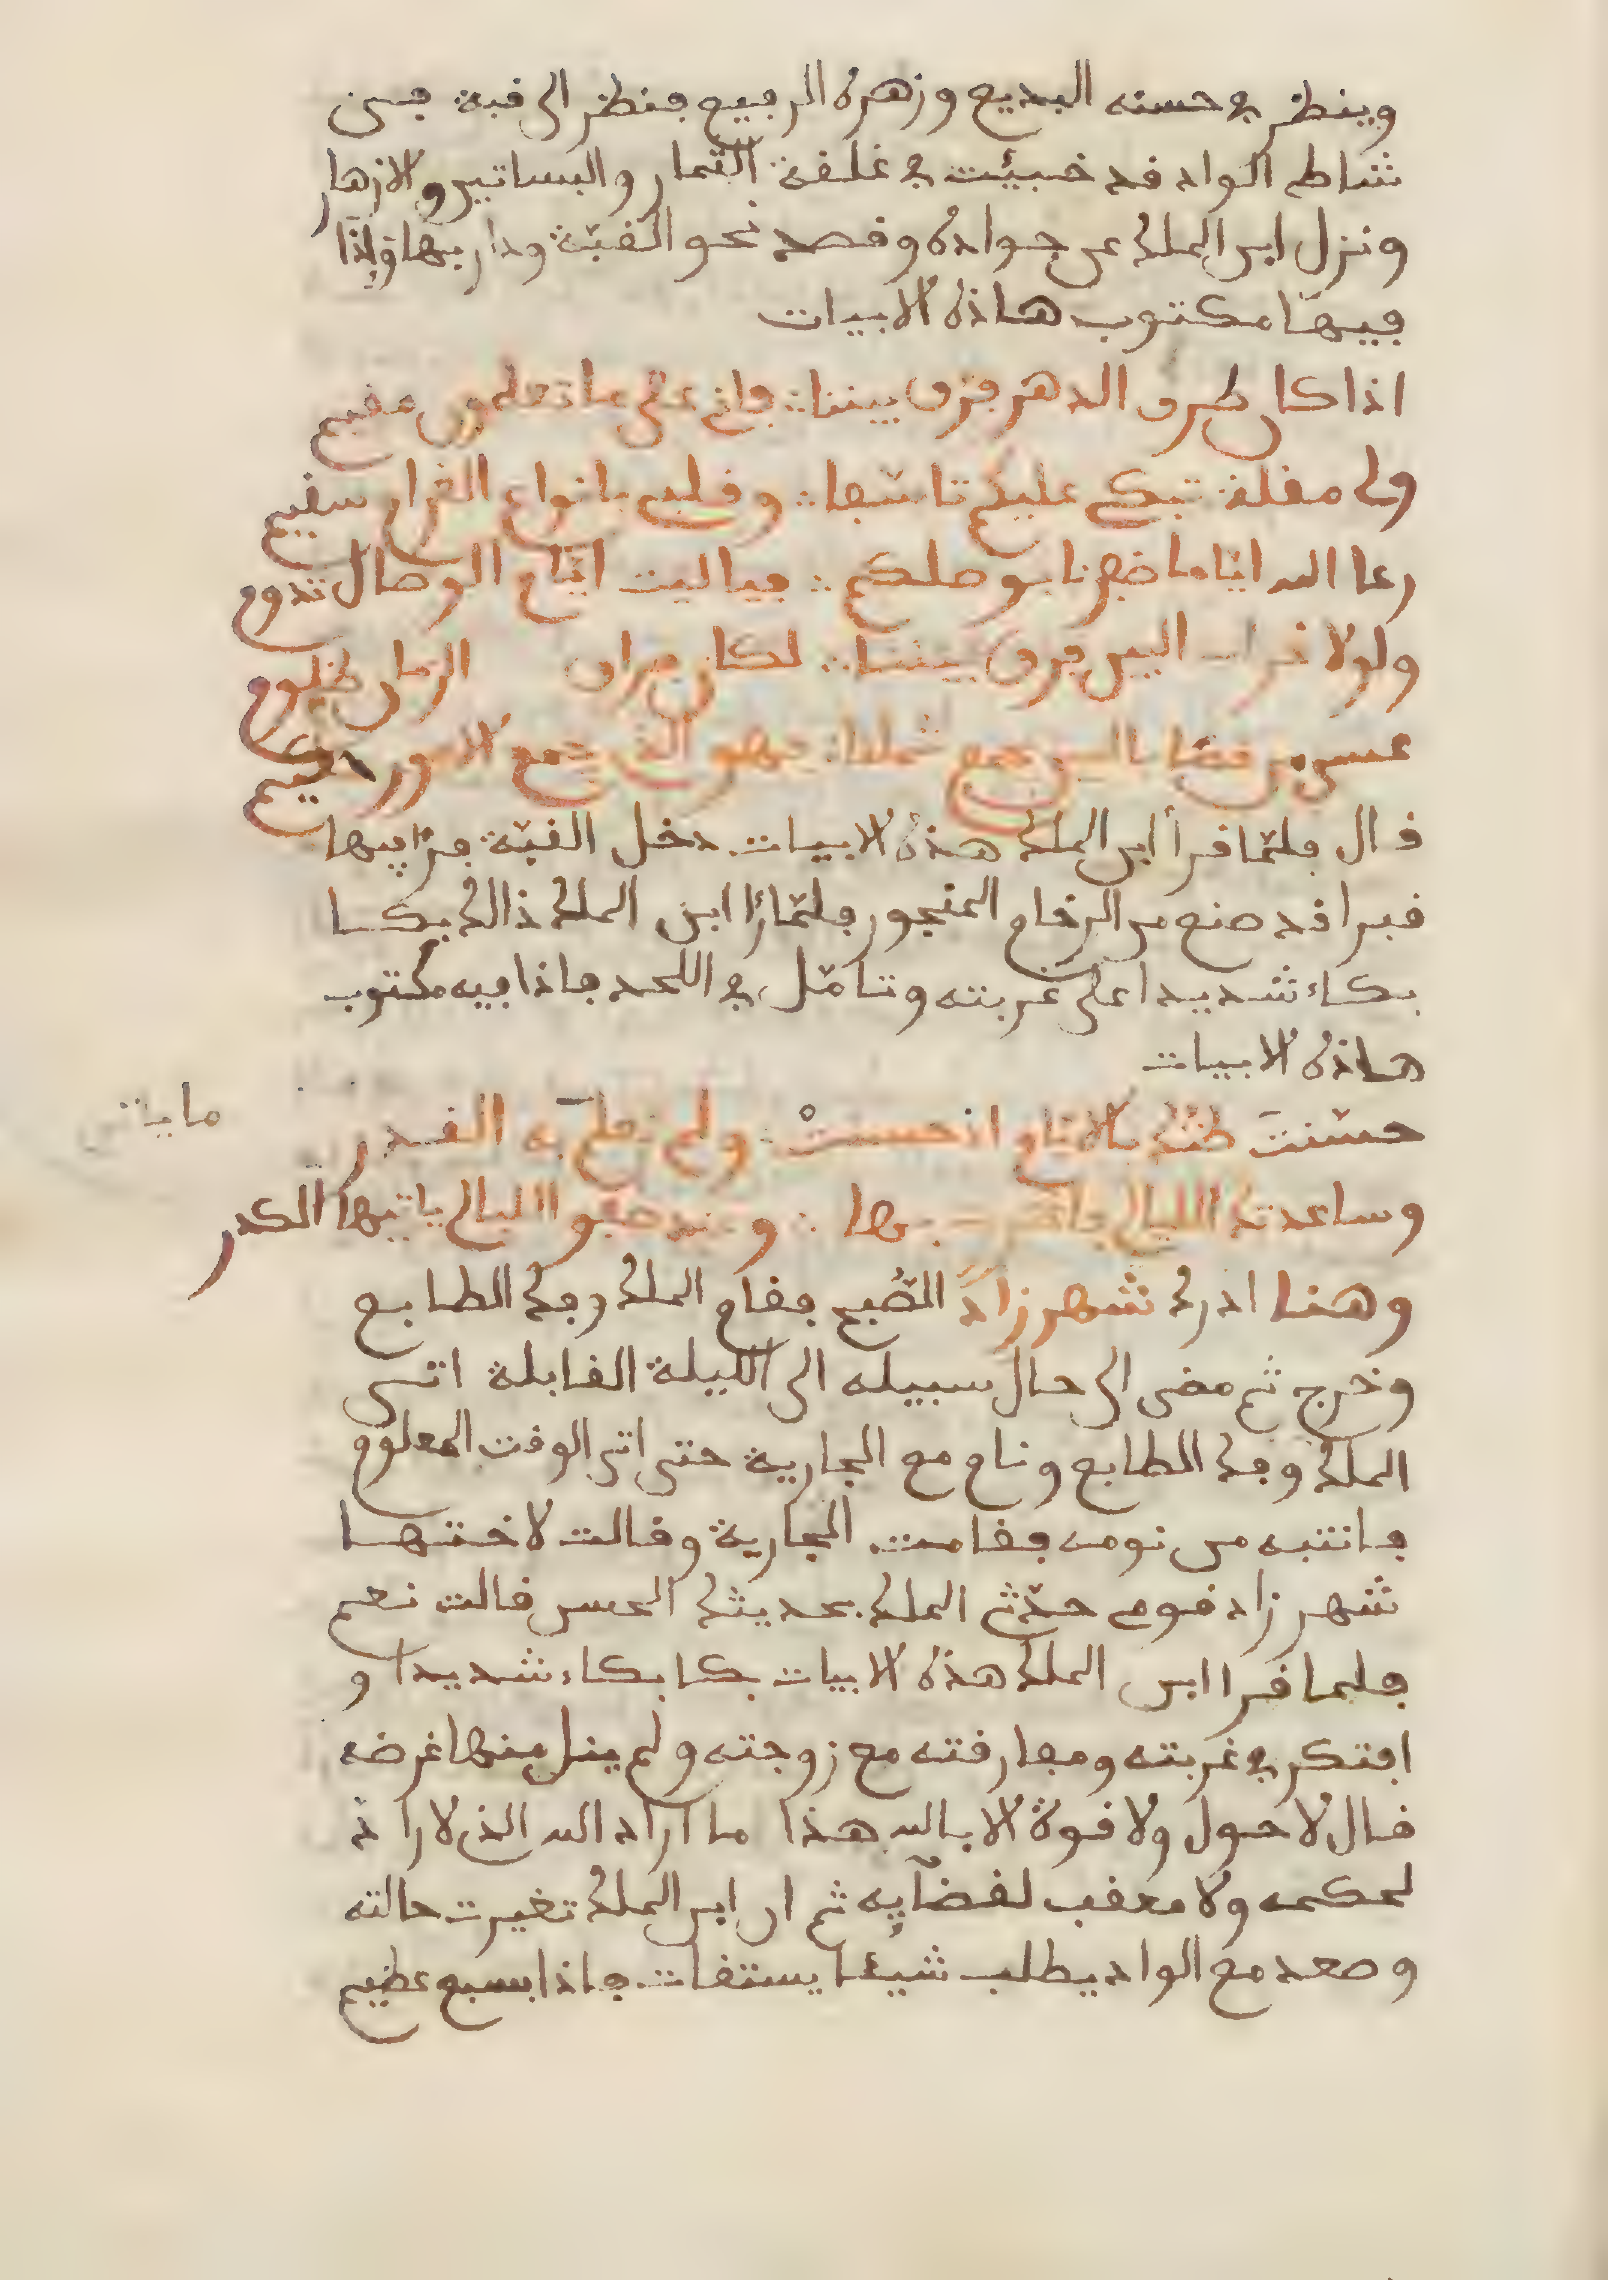 وينظر في حسنه البديع وزهره الربيع فنظر الى قبة في
شاطي الواد قد خبيّت في غلفة الثمار والبساتين والازهار
ونزل ابن الملك عن جواده وقصد نحو القبّة ودار بها وإذا
فيها مكتوب هاذه الابيات
اذا كان طرق الدهر فرق بيننا ∴ فاني على ما تعلمون مقيم
ولي مقلة تبكي عليكم تاسّفا ∴ وقلبي بانواع الغرام سقيم
رعا الله ايّاما ظفرنا بوصلكم ∴ فياليت ايّام الوصال تدوم
ولولا غراب البين فرق بيننا ∴ لكان فراق الزمان ظلوم
عسى من قضا بالبين يجمع شملنا ∴ فهو الذي جمع الامور حكيم
قال فلمّا قرأ ابن الملك هذه الابيات دخل القبّة فرأ فيها
قبرا قد صنع من الرخام المنجور فلمّا رءا ابن الملك ذالك بكا
بكاء شديدا على غربته وتامّل في اللحد فاذا فيه مكتوب
هاذه الابيات
حسّنت ظنّك بالايّام اذ حسنتْ ∴ ولم تعلم به القدر
ما ياتي
وساعدتك الليالي فاغتررت بها ∴ وعند صفو الليالي ياتيها الكدر
وهنا ادرك شهرزاد الصّبح فقام الملك وفك الطابع
وخرج ثم مضى الى حال سبيله الى الليلة القابلة اتى
الملك وفك الطابع ونام مع الجارية حتى اتى الوقت المعلوم
فانتبه من نومه فقامت الجارية وقالت لاختها
شهرزاد قومي حدّثي الملك بحديثك الحسن قالت نعم
فلما قرا ابن الملك هذه الابيات بكا بكاء شديدا و
افتكر في غربته ومفارقته مع زوجته ولم ينل منها غرضه
قال لا حول ولا قوة الا بالله هذا ما اراد الله الذي لا راد
لحكمه ولا معقب لقضآيه ثم ان ابن الملك تغيرت حالته
وصعد مع الواد يطلب شيئا يستقات فاذا بسبع عظيم